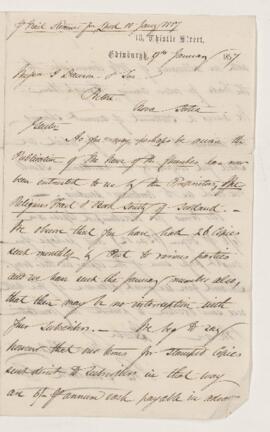 p Mail Steamer for Lpool 10 Jany 1857
13, Thistle Street,
Edinburgh, 9th January 1857
Messrs J Dawson & Son
Pictou
Nova Scotia
Gents
As you may perhaps be aware the
Publication of the
has now
been entrusted to us by the Proprietors, The
Religious Tract & Book Society of Scotland. —
We observe that you have had 26 Copies
sent monthly by Post to various parties
and we have sent the January number also,
that there may be no interruption with
your Subscribers. — We beg to say
however that our terms for stamped copies
sent direct to Subscribers in that way
are per annum each payable in advance